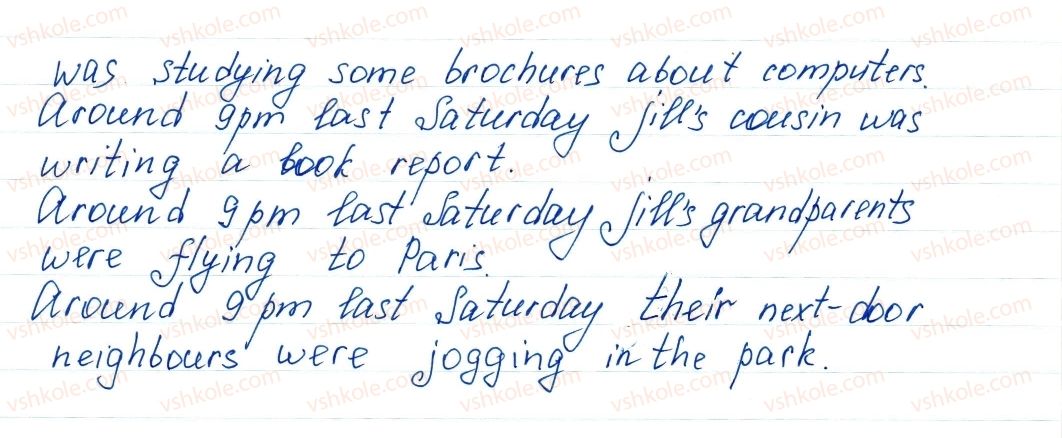 was studying some brochures about computers.
Around 9pm last Saturday Jill's cousin was
writing a book report.
Around 9 pm last Saturday Jill's grandparents
were flying to Paris.
Around 9 pm last Saturday their next-door
neighbours were jogging in the park.